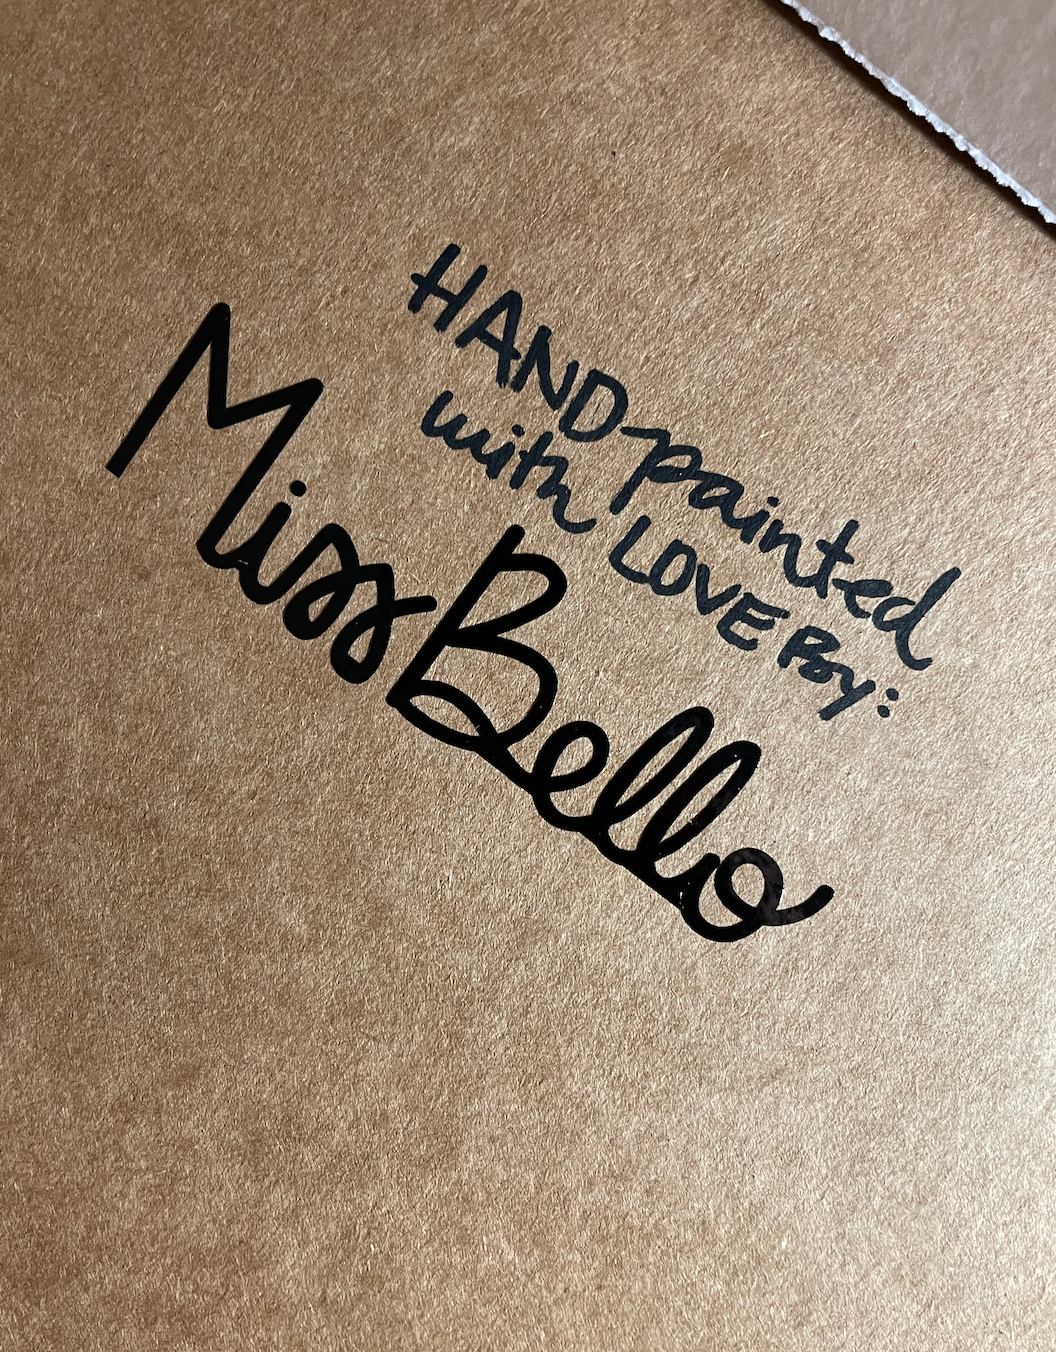 HAND-painted
with LOVE By:
Miss Bello